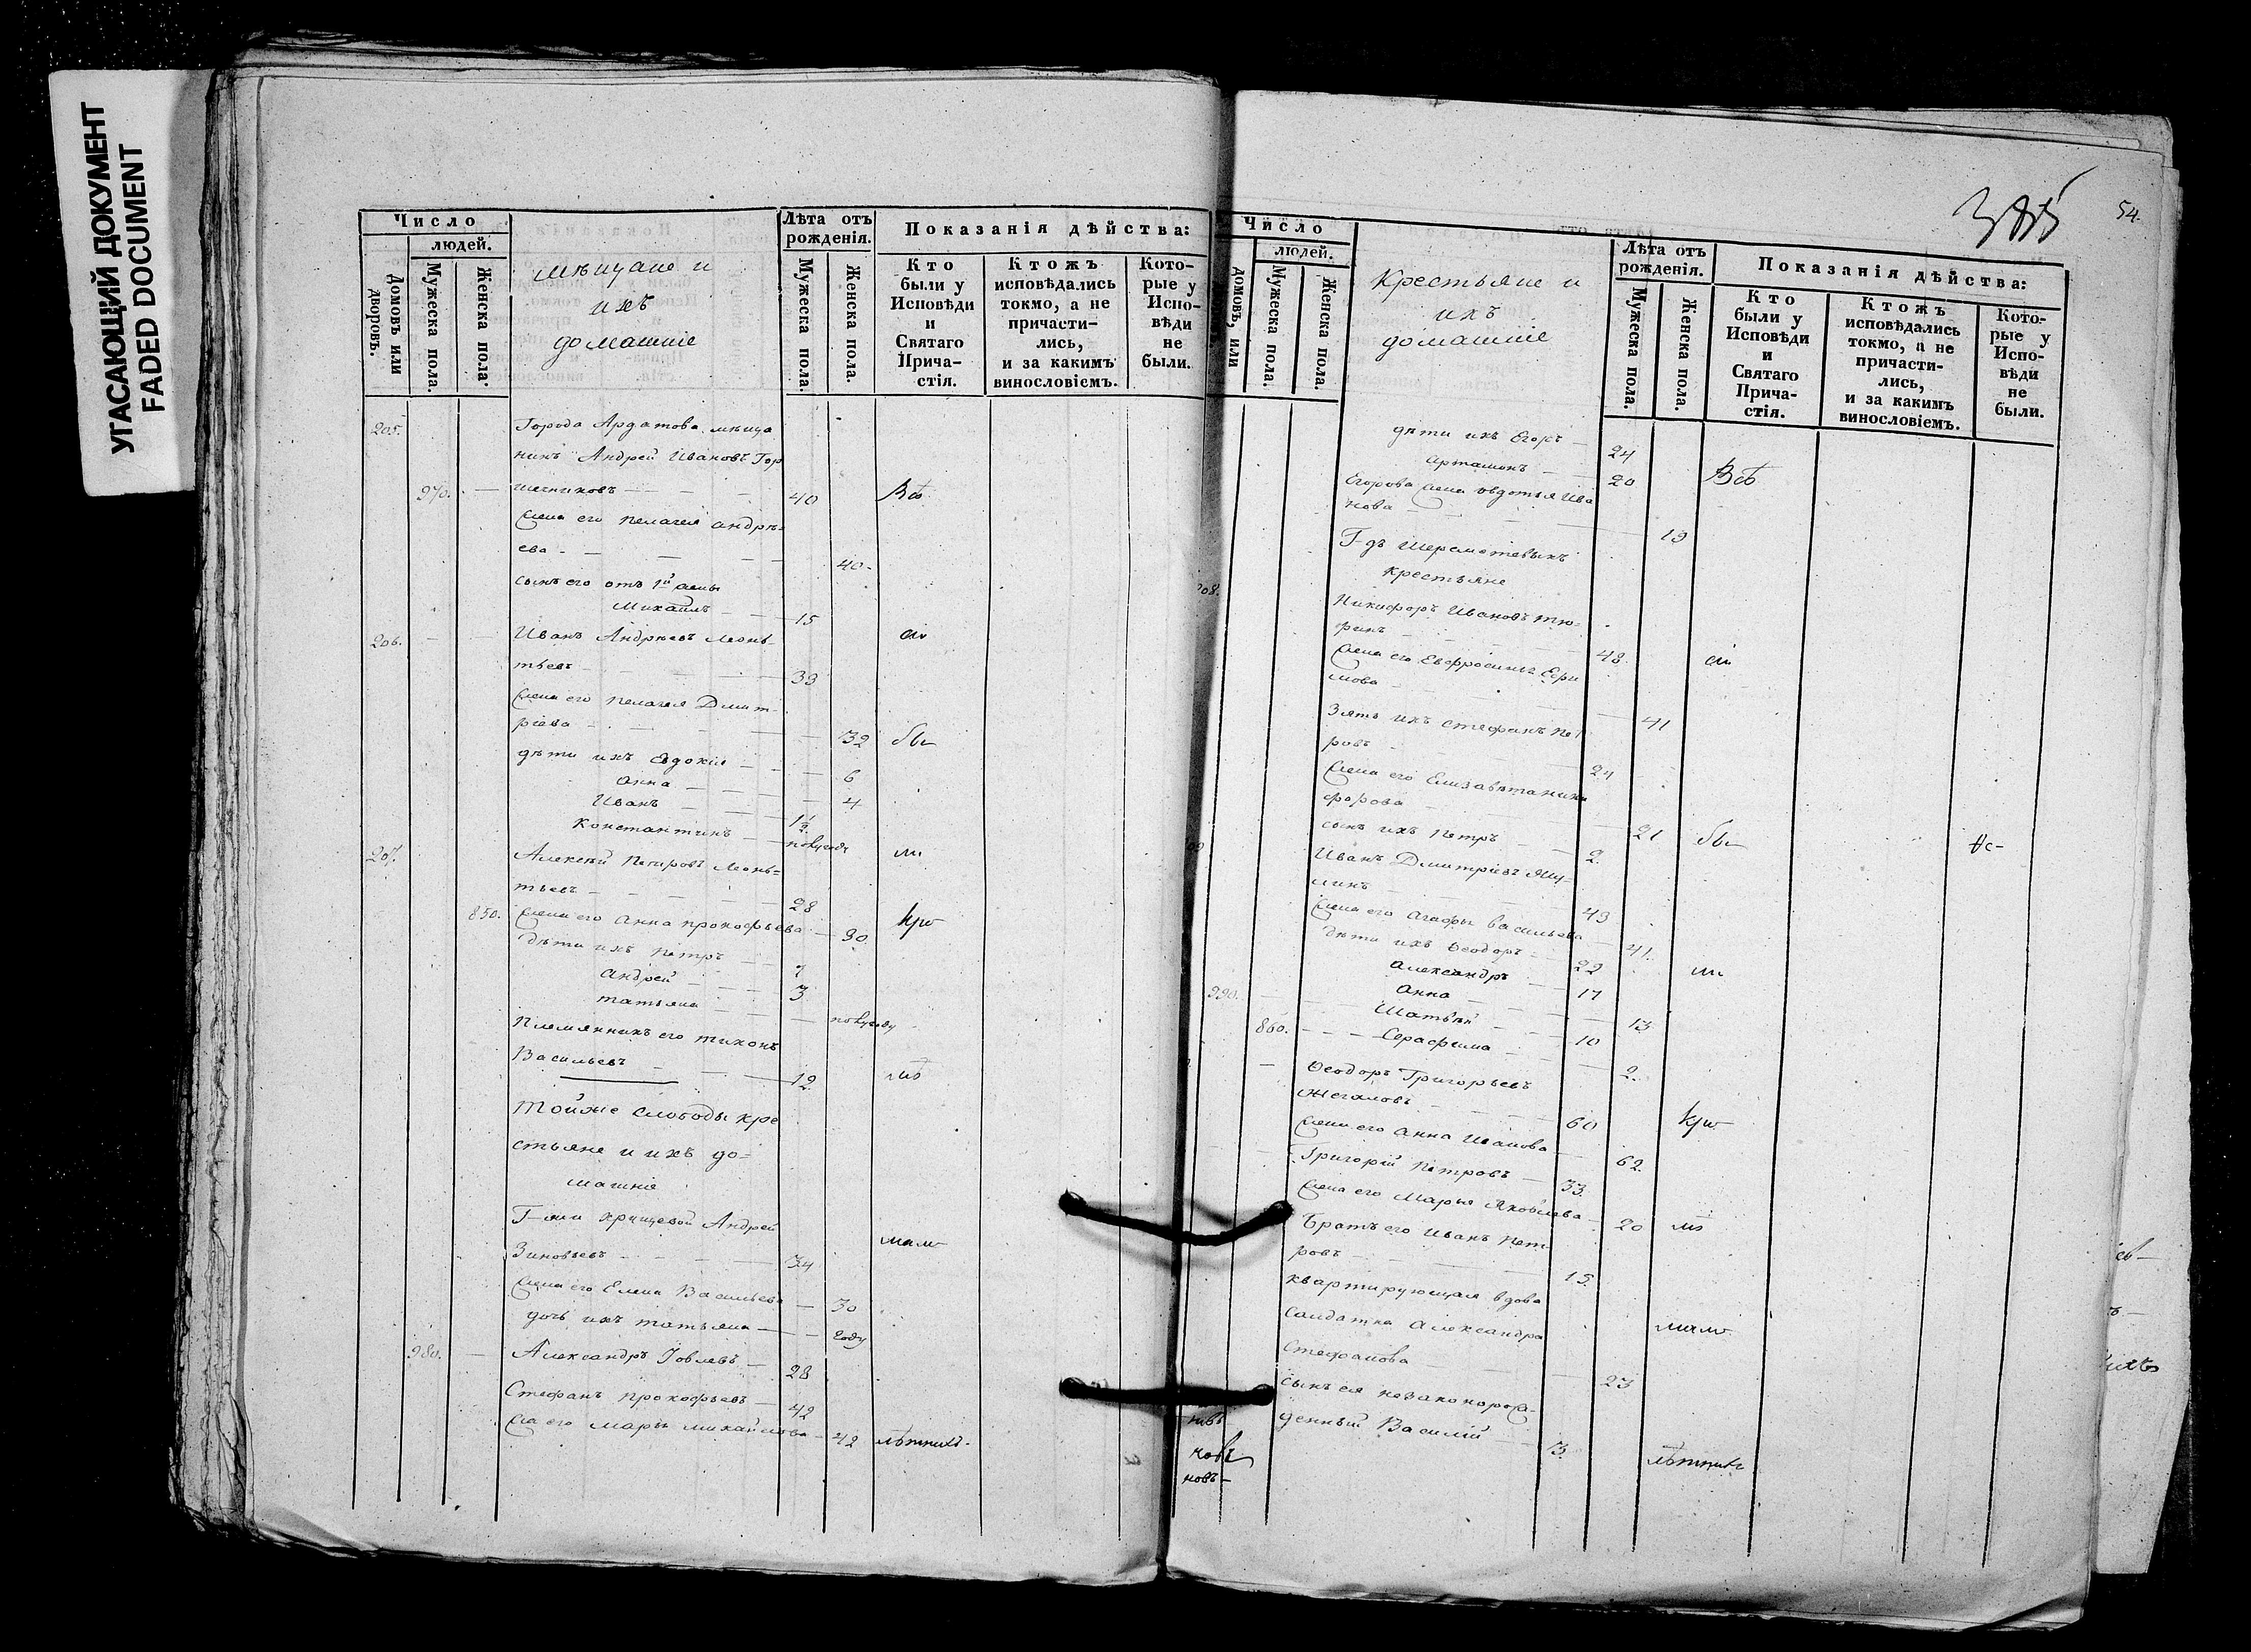 УГАСАЮЩИЙ ДОКУМЕНТ
FADED DOCUMENT
Число
людей.
Домовъ или дворовъ.
Мужеска пола.
Женска пола.
мѣщане и
ихъ
домашніе
Лѣта отъ рожденія.
Мужеска пола.
Женска пола.
Показанія дѣйства:
Кто были у Исповѣди и Святаго Прича-стія.
Ктожъ исповѣдались токмо, а не причасти-лись, и за какимъ винословіемъ.
Кото-рые у Испо-вѣди не были.
205. Города Ардатова мѣща
нинъ Андрей Ивановъ Гор
970. — шечниковъ — 40 Всѣ
Жена его Пелагея Андрѣ=
ева — 40
сынъ его отъ 1й жены
Михаилъ — 15
206. Иванъ Андреевъ Леонь- сіи
тьевъ — 33
Жена его Пелагея Дмит-
ріева — 32 бы
дѣти ихъ Евдокія — 6
Анна — 4
Иванъ — 1½
Константинъ — полугоду
207. Алексѣй Петровъ Леонь= ли
тьевъ — 28
850. Жена его Анна Прокофьева — 30 кро
дѣти ихъ Петръ — 7
Андрей — 3
Татьяна — полугоду
Племянникъ его Тихонъ
Васильевъ — 12.
Той же слободы кре
стьяне и ихъ до=
машніе
Г-жи Хрущевой Андрей
Зиновьевъ — 34 мало
Жена его Елена Васильева — 30
дочь ихъ Татьяна — году
980. — Александръ Іовлевъ — 28
Стефанъ Прокофьевъ — 42
Жена его Марья Михайлова — 42 лѣтнихъ-
385
54.
Число
людей.
домовъ, или
Мужеска пола.
Женска пола.
Крестьяне и
ихъ
домашніе
Лѣта отъ рожденія.
Мужеска пола.
Женска пола.
Показанія дѣйства:
Кто были у Исповѣди и Святаго Прича-стія.
Ктожъ исповѣдались токмо, а не причасти-лись, и за какимъ винословіемъ.
Кото-рые у Испо-вѣди не были.
дѣти ихъ Егоръ — 24
Артамонъ — 20 Всѣ
Егорова жена Авдотья Ива
нова — 19
Г-дъ Шереметевыхъ
крестьяне
208. Никифоръ Ивановъ Тю-
ринъ — 48 сіи
Жена его Евфросинья Ефи
мова — 41
Зять ихъ Стефанъ Пет
ровъ — 24
Жена его Елизавета Ники
форова — 21 бы
сынъ ихъ Петръ — 2.
Иванъ Дмитріевъ
43
Жена его Агафья Васильева — 41.
дѣти ихъ Ѳеодоръ — 22 ли
Александръ — 17
990. Анна — 13
Матвѣй — 10
860. — Серафима — 2.
Ѳеодоръ Григорьевъ
Жегаловъ — 60 кро
Жена его Анна Иванова — 62.
Григорій Петровъ — 33.
Жена его Марья Яковлева — 20
Братъ его Иванъ Пет-
ровъ — 15.
квартирующая вдова
Салдатка Александра мало
Стефанова — 23
сынъ ея незаконорож-
денный Василій — 3. лѣтнихъ
новъ-